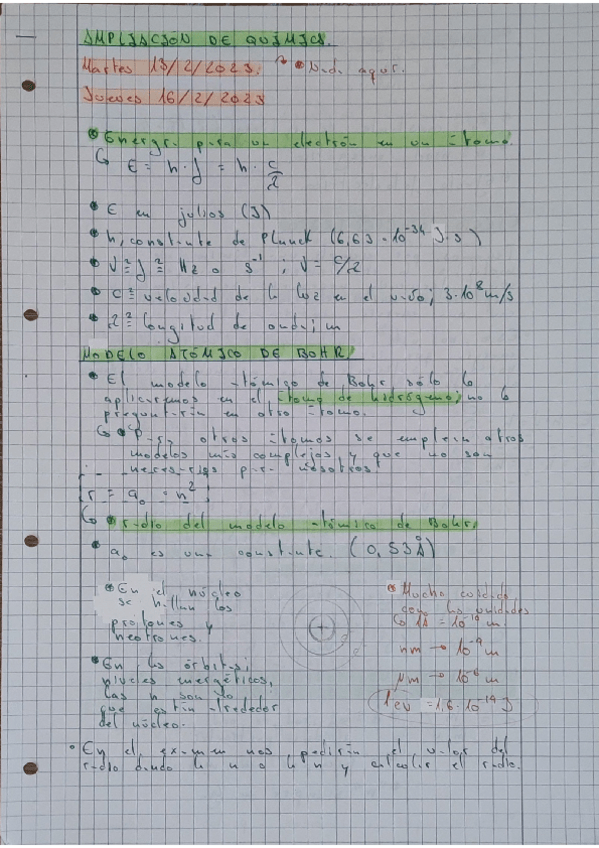 AMPLIACIÓN DE QUÍMICA.
Martes 13/2/2023. → • Nada aquí.
Jueves 16/2/2023
• Energía para un electrón en un átomo.
↳ E = h · f = h · c/λ
• E en julios (J)
• h, constante de Planck (6,63 · 10⁻³⁴ J·s)
• ν ≡ f ≡ Hz o s⁻¹ ; ν = c/λ
• c ≡ velocidad de la luz en el vacío; 3·10⁸ m/s
• λ ≡ longitud de onda; m
MODELO ATÓMICO DE BOHR
• El modelo atómico de Bohr sólo lo
aplicaremos en el átomo de hidrógeno; no lo
preguntarán en otro átomo.
↳ • Para otros átomos se emplean otros
modelos más complejos y que no son
necesarios para nosotros.
r = a₀ · n²
↳ • radio del modelo atómico de Bohr.
• a₀ es una constante. (0,53Å)
• En el núcleo
se hallan los
protones y
neutrones.
• En las órbitas;
niveles energéticos,
las n son lo
que están alrededor
del núcleo.
• Mucho cuidado
con las unidades
↳ 1Å = 10⁻¹⁰ m
nm → 10⁻⁹ m
μm → 10⁻⁶ m
1 eV = 1,6·10⁻¹⁹ J
• En el examen nos pedirán el valor del
radio dando la n o la n y calcular el radio.